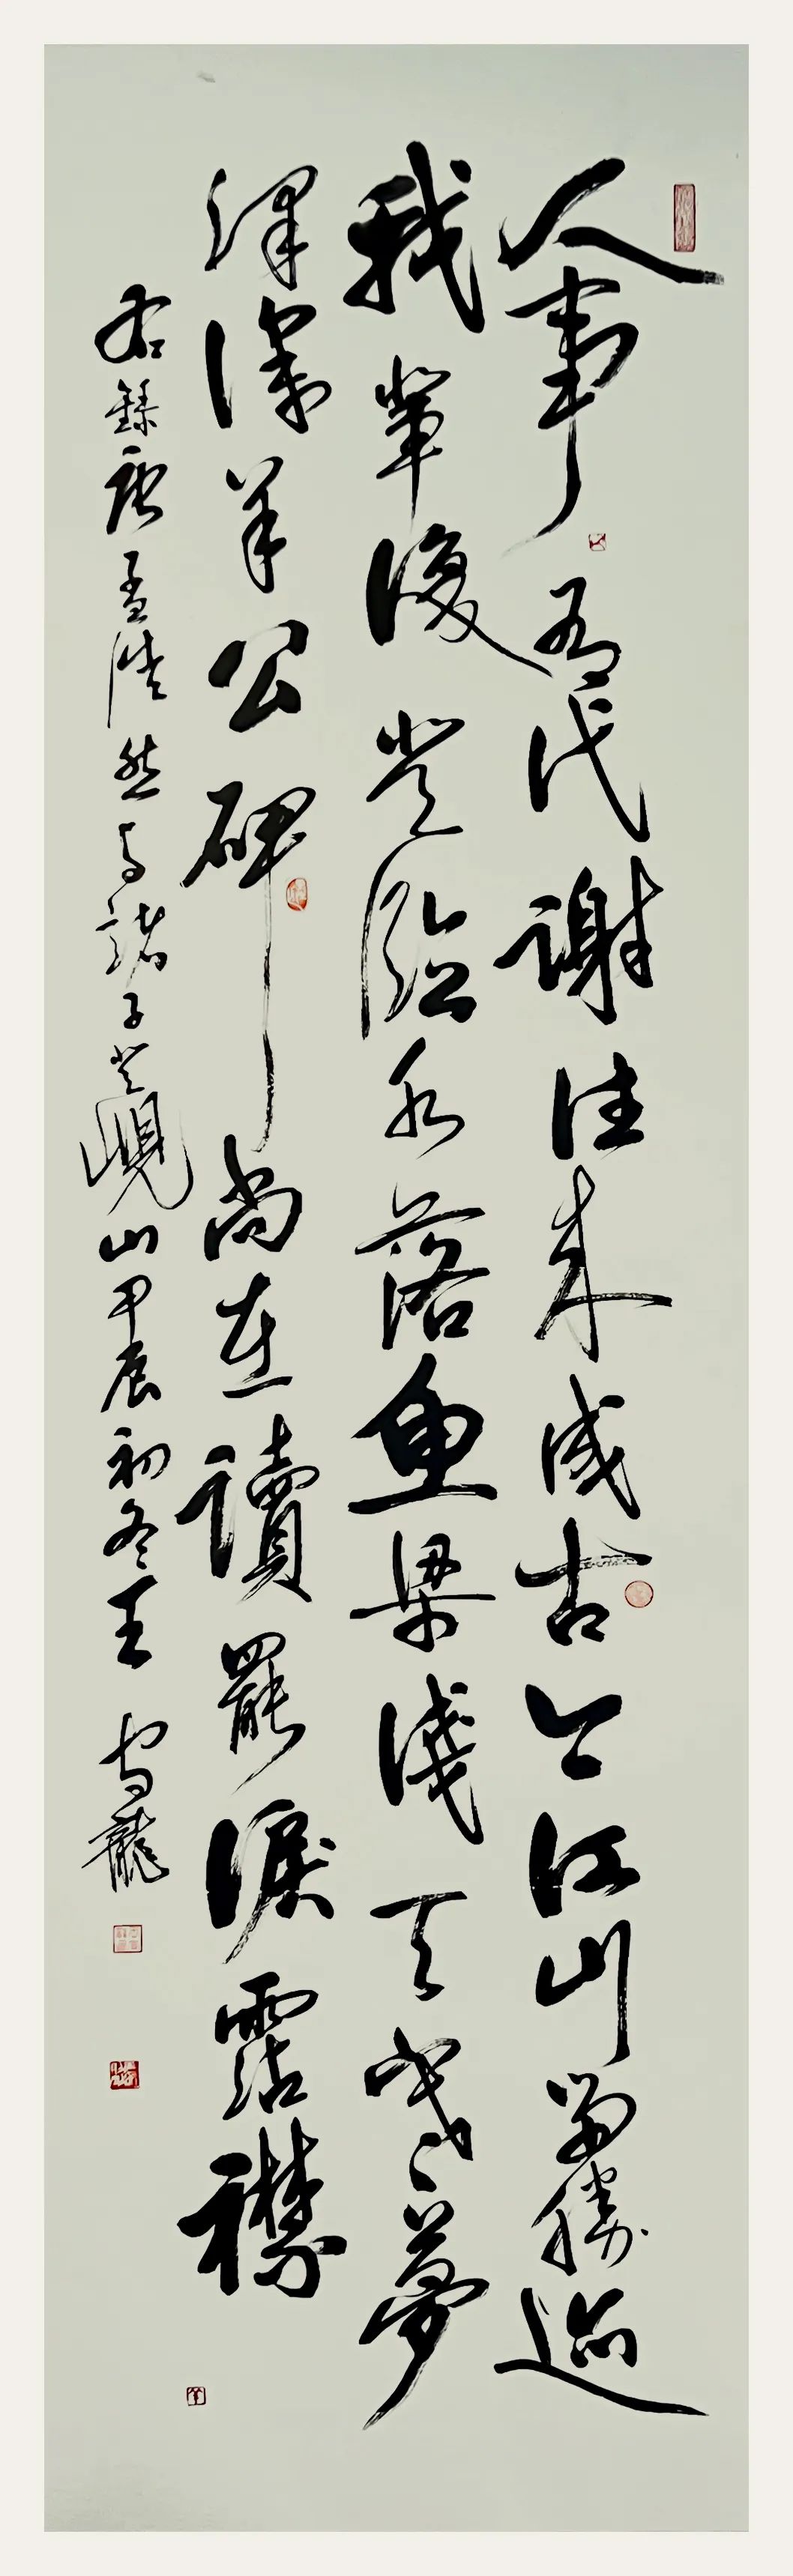 人事有代謝往来成古今江山留勝迹
我輩復登臨水落魚梁淺天寒夢
澤深羊公碑尚在讀罷淚霑襟
右錄唐孟浩然与諸子登峴山甲辰初冬王守龍